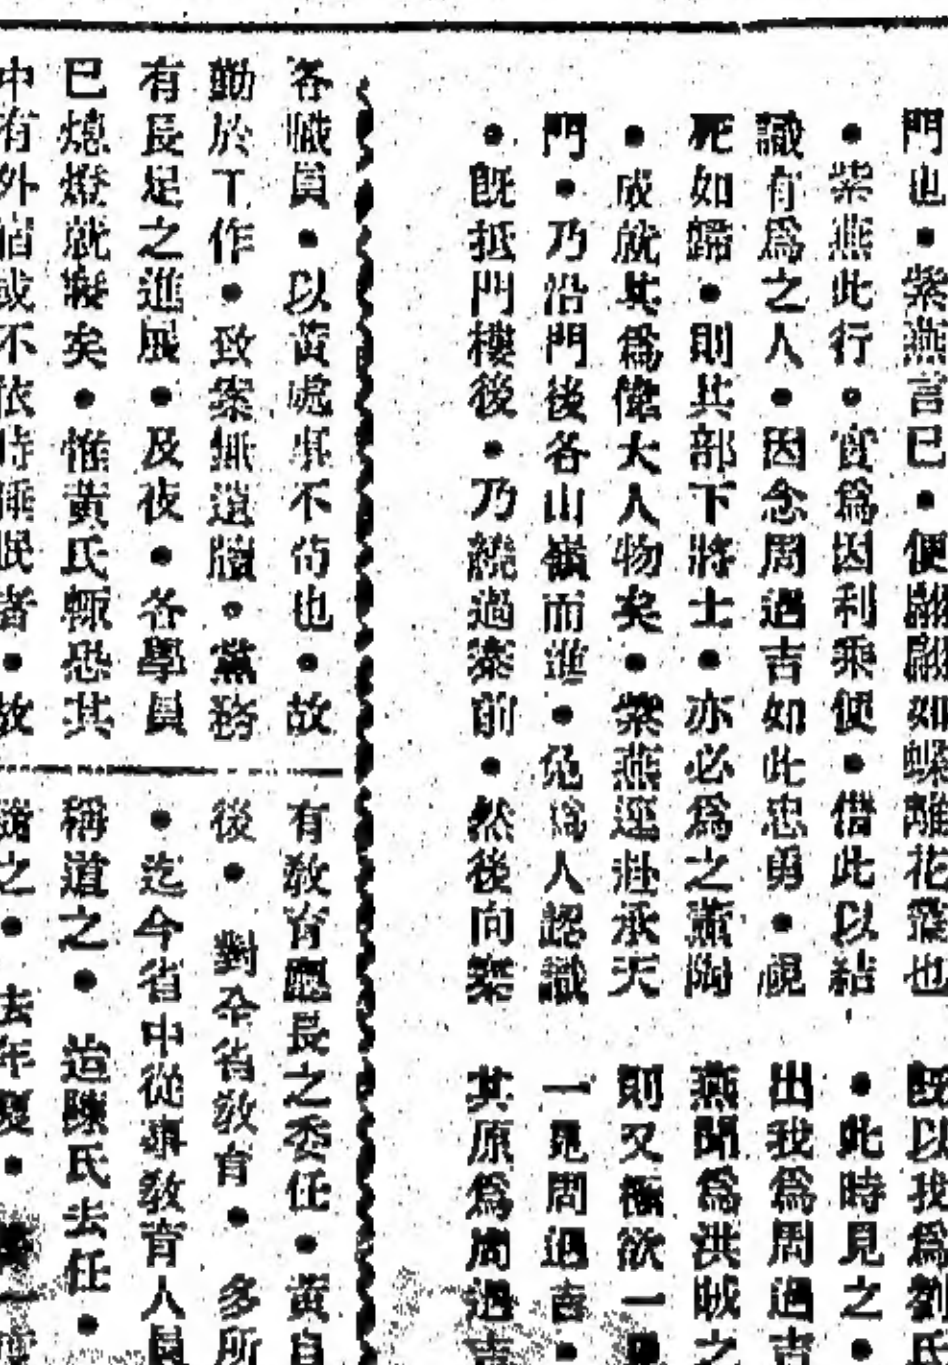 門也•紫燕言已•便翩翩如蝶離花叢也
•紫燕此行•實爲因利乘便•借此以結
識有爲之人•因念周遇吉如此忠勇•視
死如歸•則其部下將士•亦必爲之薰陶
•成就其爲偉大人物矣•紫燕逕赴承天
門•乃沿門後各山嶺而進•免爲人認識
•旣抵門樓後•乃繞過秦前•然後向寨
旣以我爲劉氏
•此時見之•
出我爲周遇吉
燕聞爲洪賊之
則又極欲一見
一見周遇吉•
其原爲周遇吉
各職員•以黃處事不苟也•故
勤於工作•致案無遺牘•黨務
有長足之進展•及夜•各學員
已熄燈就寢矣•惟黃氏輒恐其
中有外宿或不依時睡眠者•故
有敎育廳長之委任•黃自
後•對全省敎育•多所
•迄今省中從事敎育人員
稱道之•迨陳氏去任•
之•去年夏•